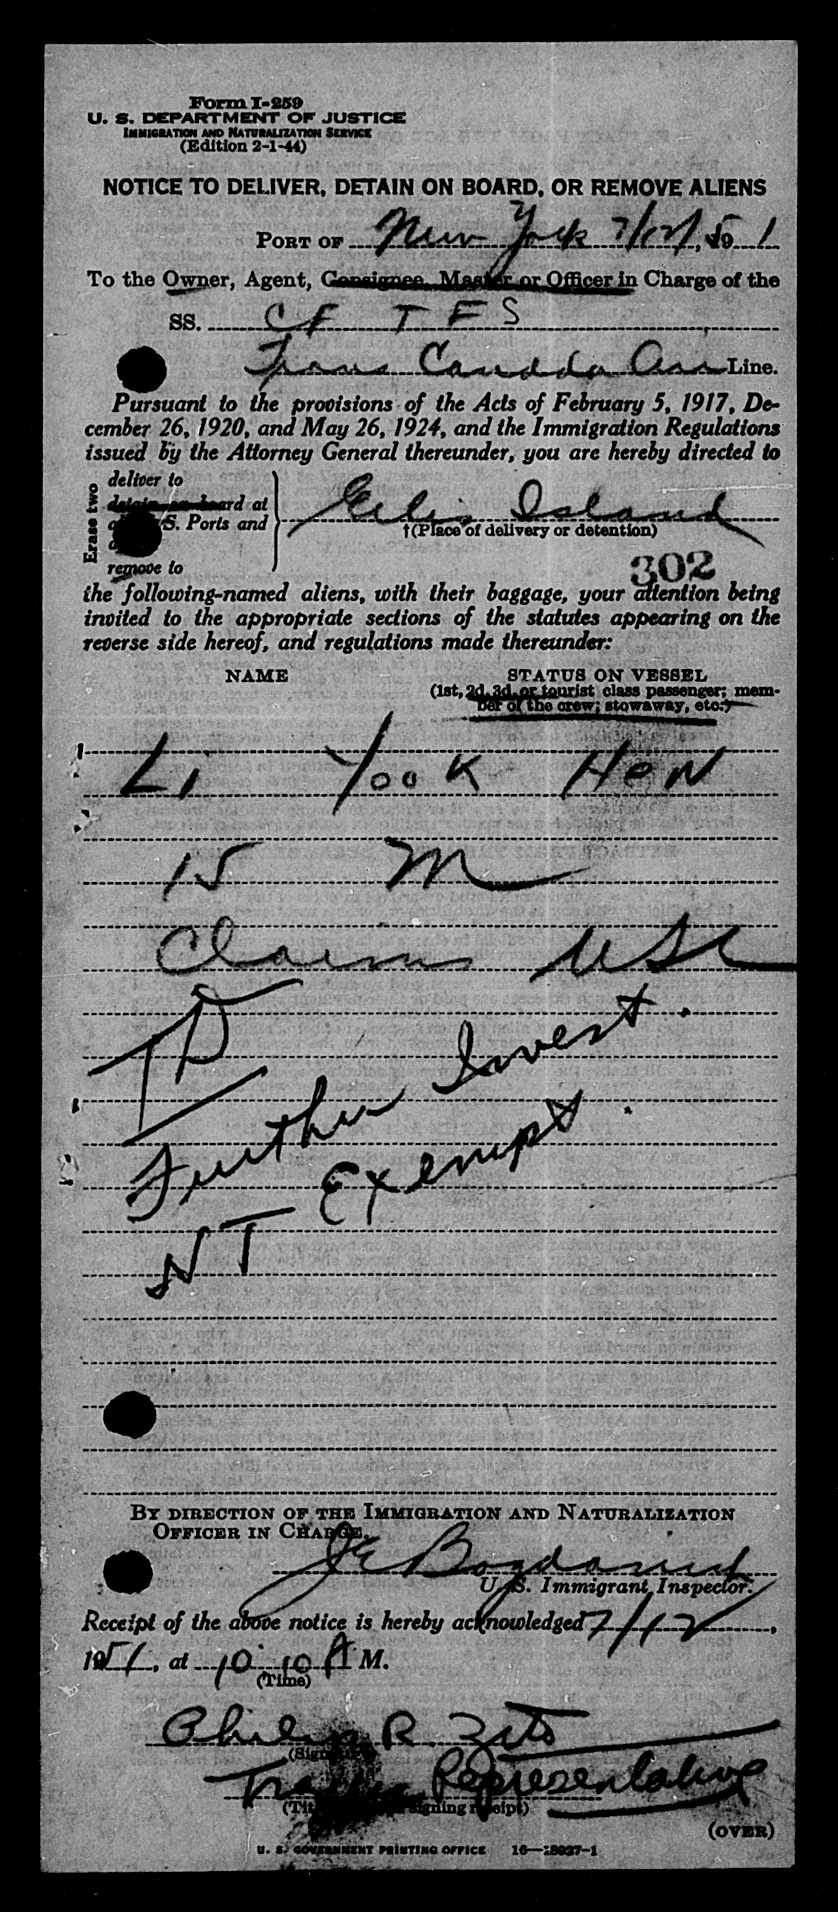 Form I-259
U. S. DEPARTMENT OF JUSTICE
IMMIGRATION AND NATURALIZATION SERVICE
(Edition 2-1-44)
NOTICE TO DELIVER, DETAIN ON BOARD, OR REMOVE ALIENS
PORT OF New York 7/12/, 1951
To the Owner, Agent, Consignee, Master or Officer in Charge of the
SS. CF TFS
Trans Canada Air Line.
Pursuant to the provisions of the Acts of February 5, 1917, De-
cember 26, 1920, and May 26, 1924, and the Immigration Regulations
issued by the Attorney General thereunder, you are hereby directed to
Erase two
deliver to
detain on board at
S. Ports and
remove to
Ellis Island
†(Place of delivery or detention)
302
the following-named aliens, with their baggage, your attention being
invited to the appropriate sections of the statutes appearing on the
reverse side hereof, and regulations made thereunder:
NAME STATUS ON VESSEL
(1st, 2d, 3d, or tourist class passenger; mem-
ber of the crew; stowaway, etc.)
Li Yook Hon
15 M
Claims USC
TD
Further Invest.
NT Exempt.
BY DIRECTION OF THE IMMIGRATION AND NATURALIZATION
OFFICER IN CHARGE.
JE
U. S. Immigrant Inspector.
Receipt of the above notice is hereby acknowledged 7/12,
1951, at 10:10 A M.
(Time)
Philip R. Zito
Representative
signing receipt)
(OVER)
U. S. GOVERNMENT PRINTING OFFICE 16—18027-1